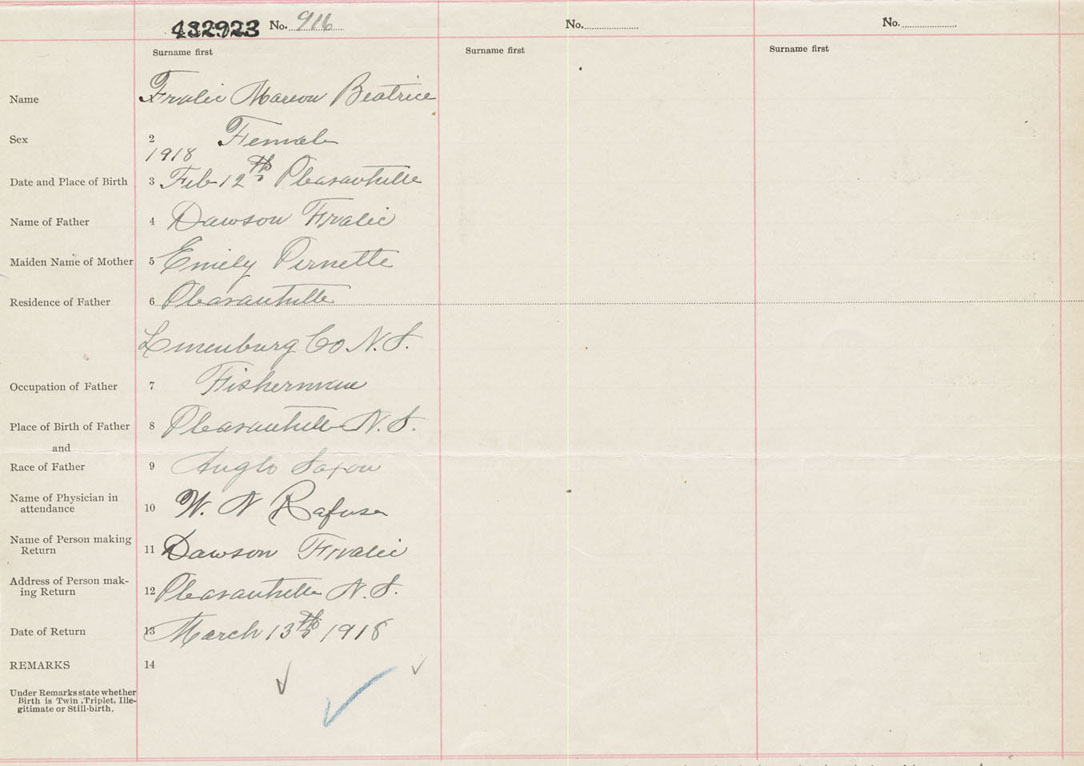 432923 No. 916 No. No.
Surname first Surname first Surname first
Name Fralic Marion Beatrice
Sex 2 Female
1918
Date and Place of Birth 3 Feb 12th Pleasantville
Name of Father 4 Dawson Fralic
Maiden Name of Mother 5 Emily Pernette
Residence of Father 6 Pleasantville
Lunenburg Co N.S.
Occupation of Father 7 Fisherman
Place of Birth of Father 8 Pleasantville N.S.
and
Race of Father 9 Anglo Saxon
Name of Physician in
attendance 10 W. N Rafuse
Name of Person making
Return 11 Dawson Fralic
Address of Person mak-
ing Return 12 Pleasantville N.S.
Date of Return 13 March 13th 1918
REMARKS 14
Under Remarks state whether
Birth is Twin, Triplet, Ille-
gitimate or Still-birth.